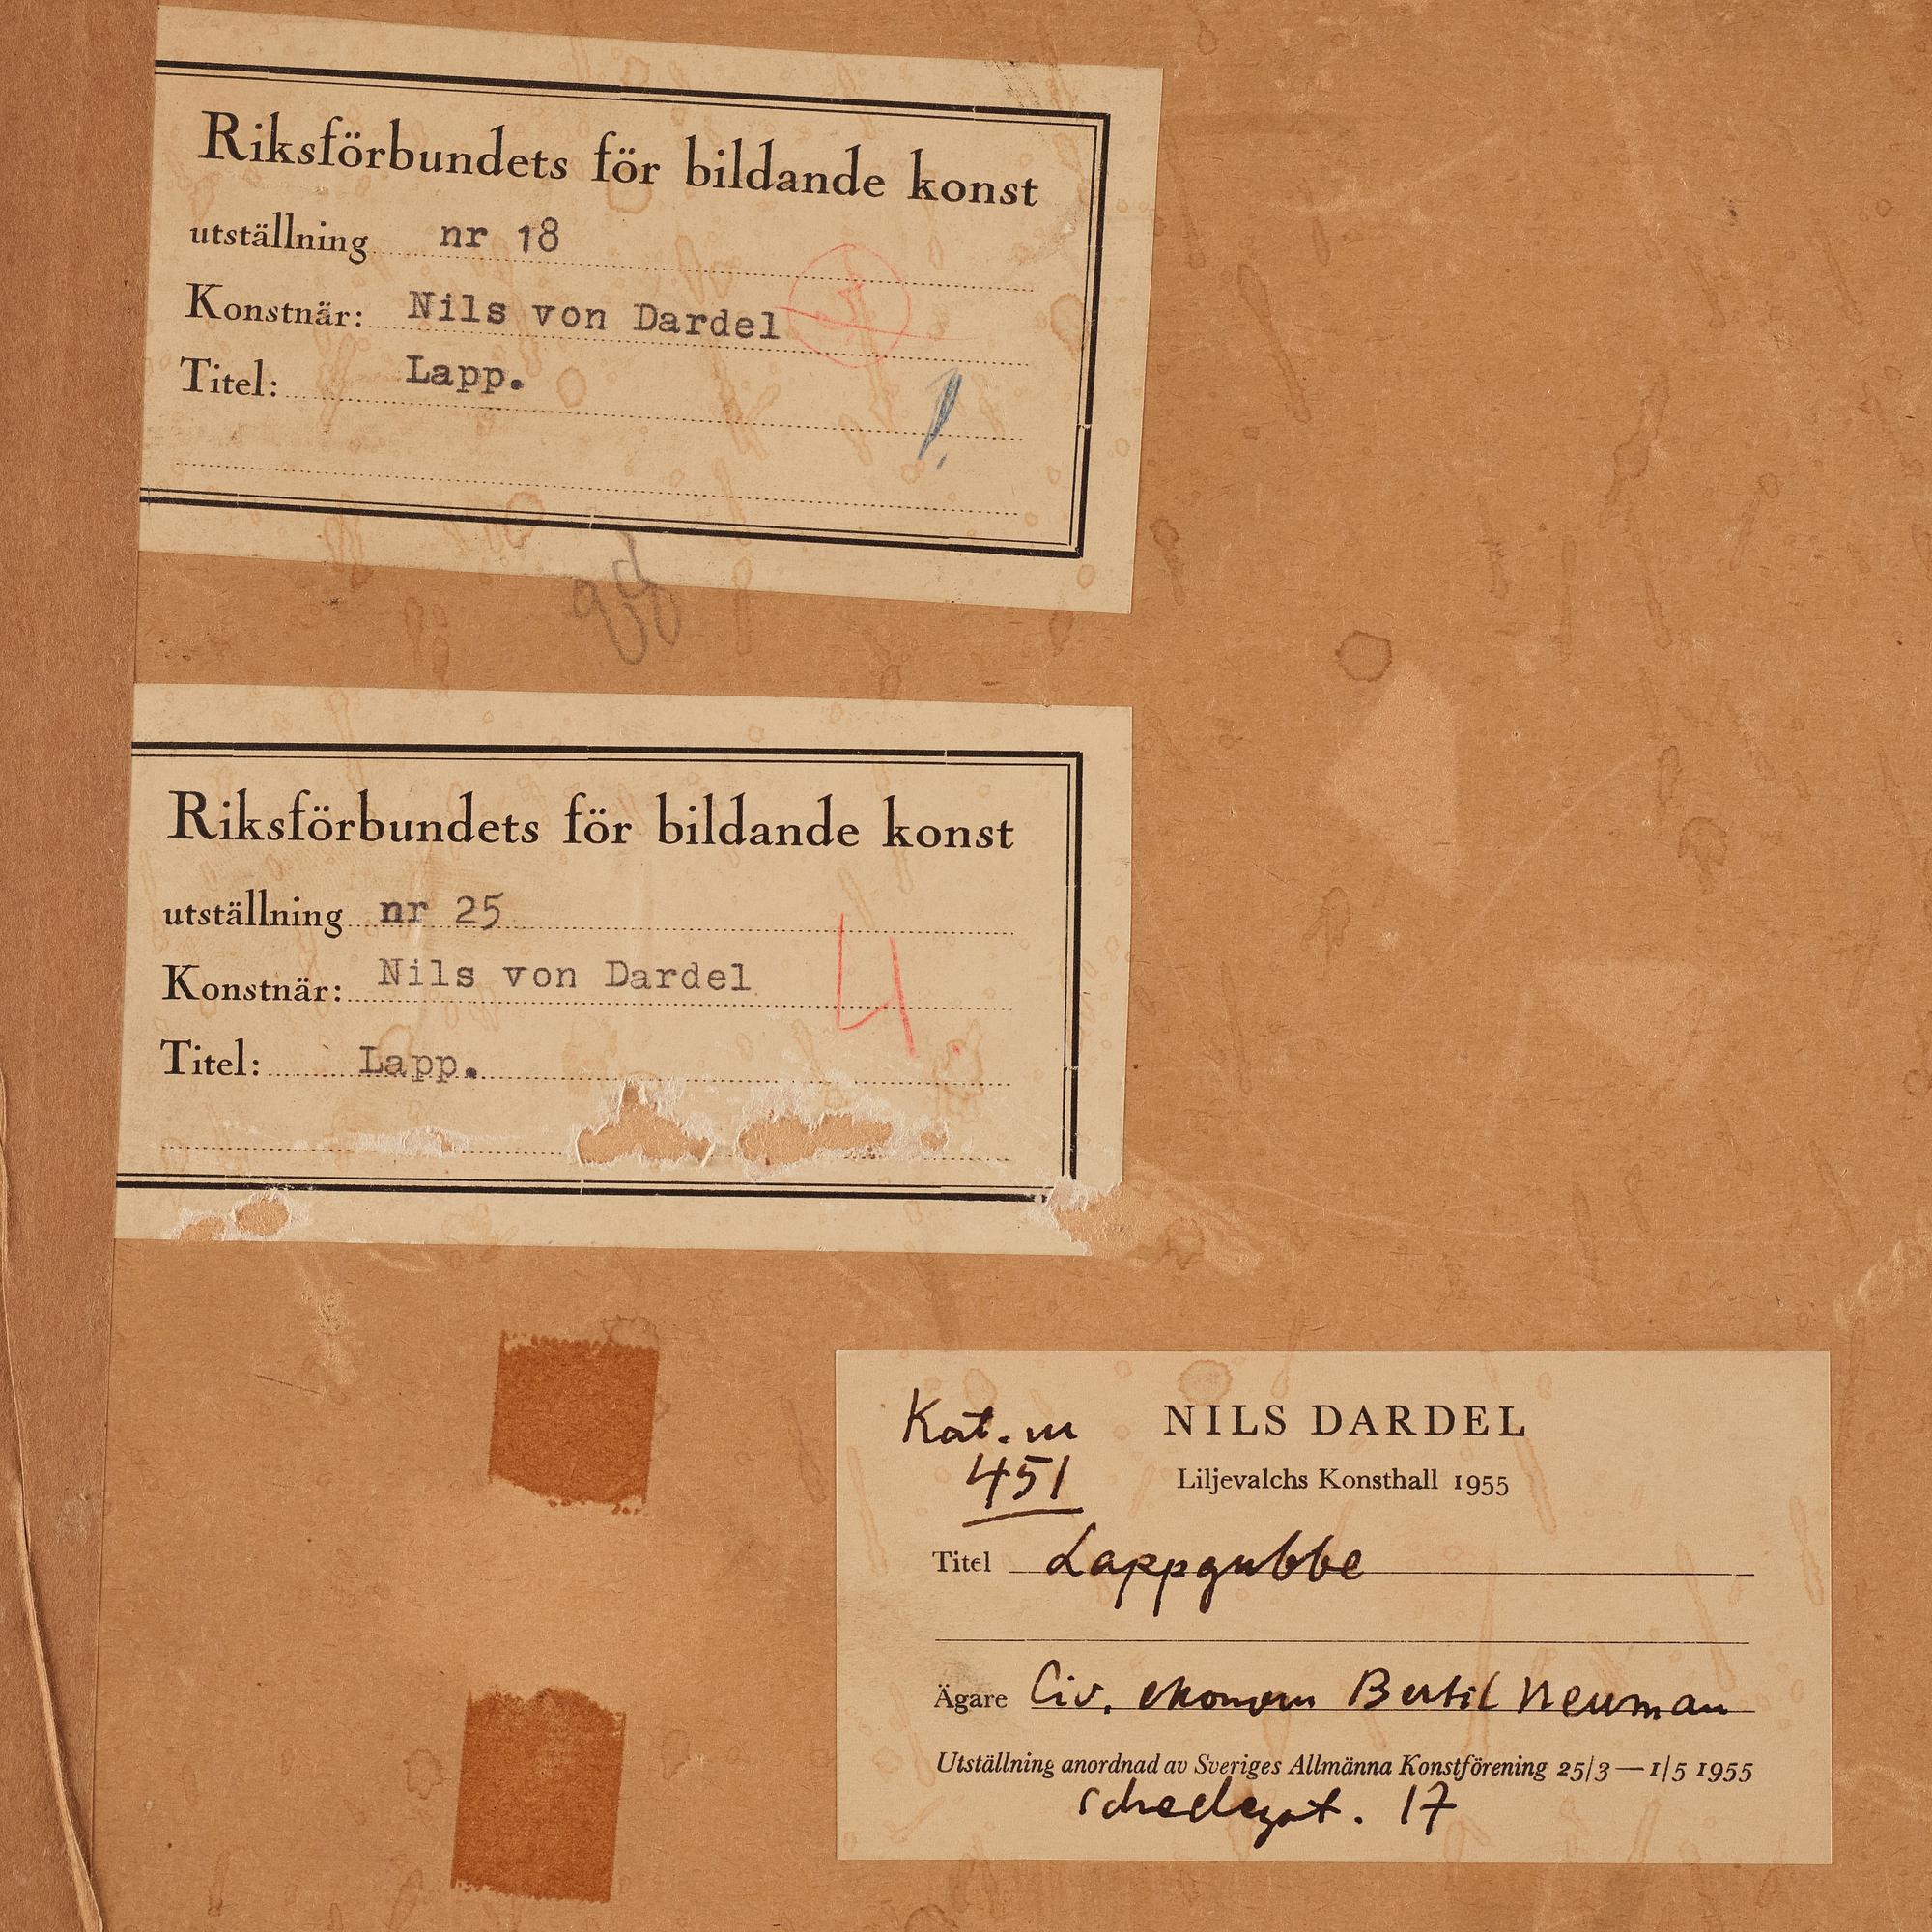 Riksförbundets för bildande konst
utställning nr 18
Konstnär: Nils von Dardel
Titel: Lapp.
Riksförbundets för bildande konst
utställning nr 25
Konstnär: Nils von Dardel
4.
Titel: Lapp.
Kat. nr NILS DARDEL
451 Liljevalchs Konsthall 1955
Titel Lappgubbe
Ägare Civ. ekonom Bertil Neuman
Utställning anordnad av Sveriges Allmänna Konstförening 25/3—1/5 1955
17